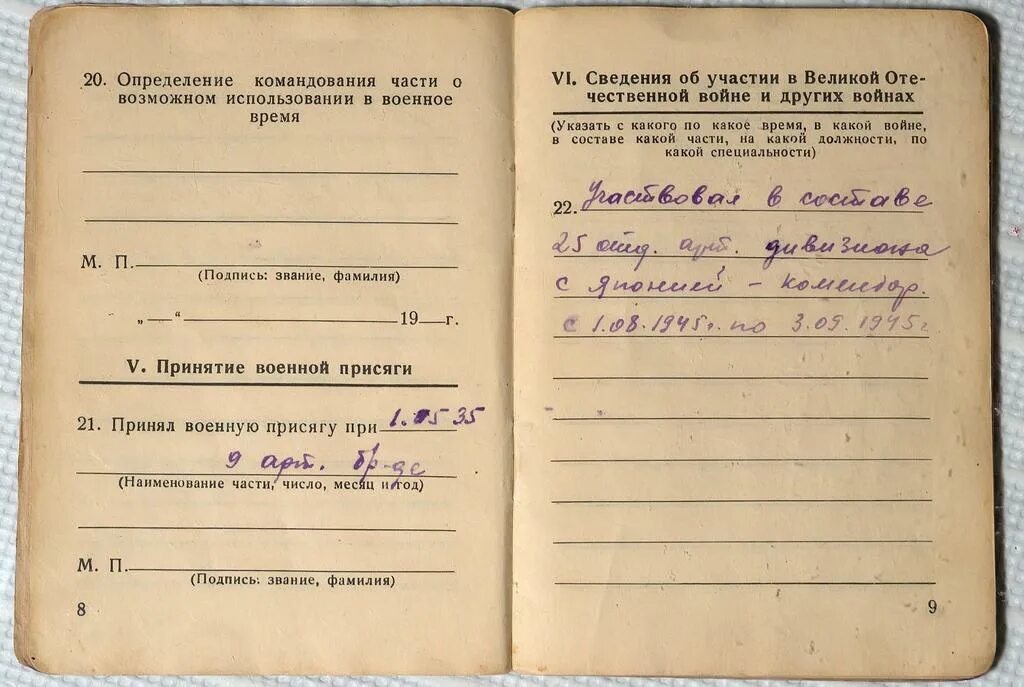 20. Определение командования части о
возможном использовании в военное
время
М. П.
(Подпись: звание, фамилия)
„—“ 19 г.
V. Принятие военной присяги
21. Принял военную присягу при 1.05 35
9 арт. бр-де
(Наименование части, число, месяц и год)
М. П.
(Подпись: звание, фамилия)
8
VI. Сведения об участии в Великой Оте-
чественной войне и других войнах
(Указать с какого по какое время, в какой войне,
в составе какой части, на какой должности, по
какой специальности)
22. Участвовал в составе
25 отд. арт. дивизиона
с Японией – комендор.
с 1.08.1945г. по 3.09.1945г
9